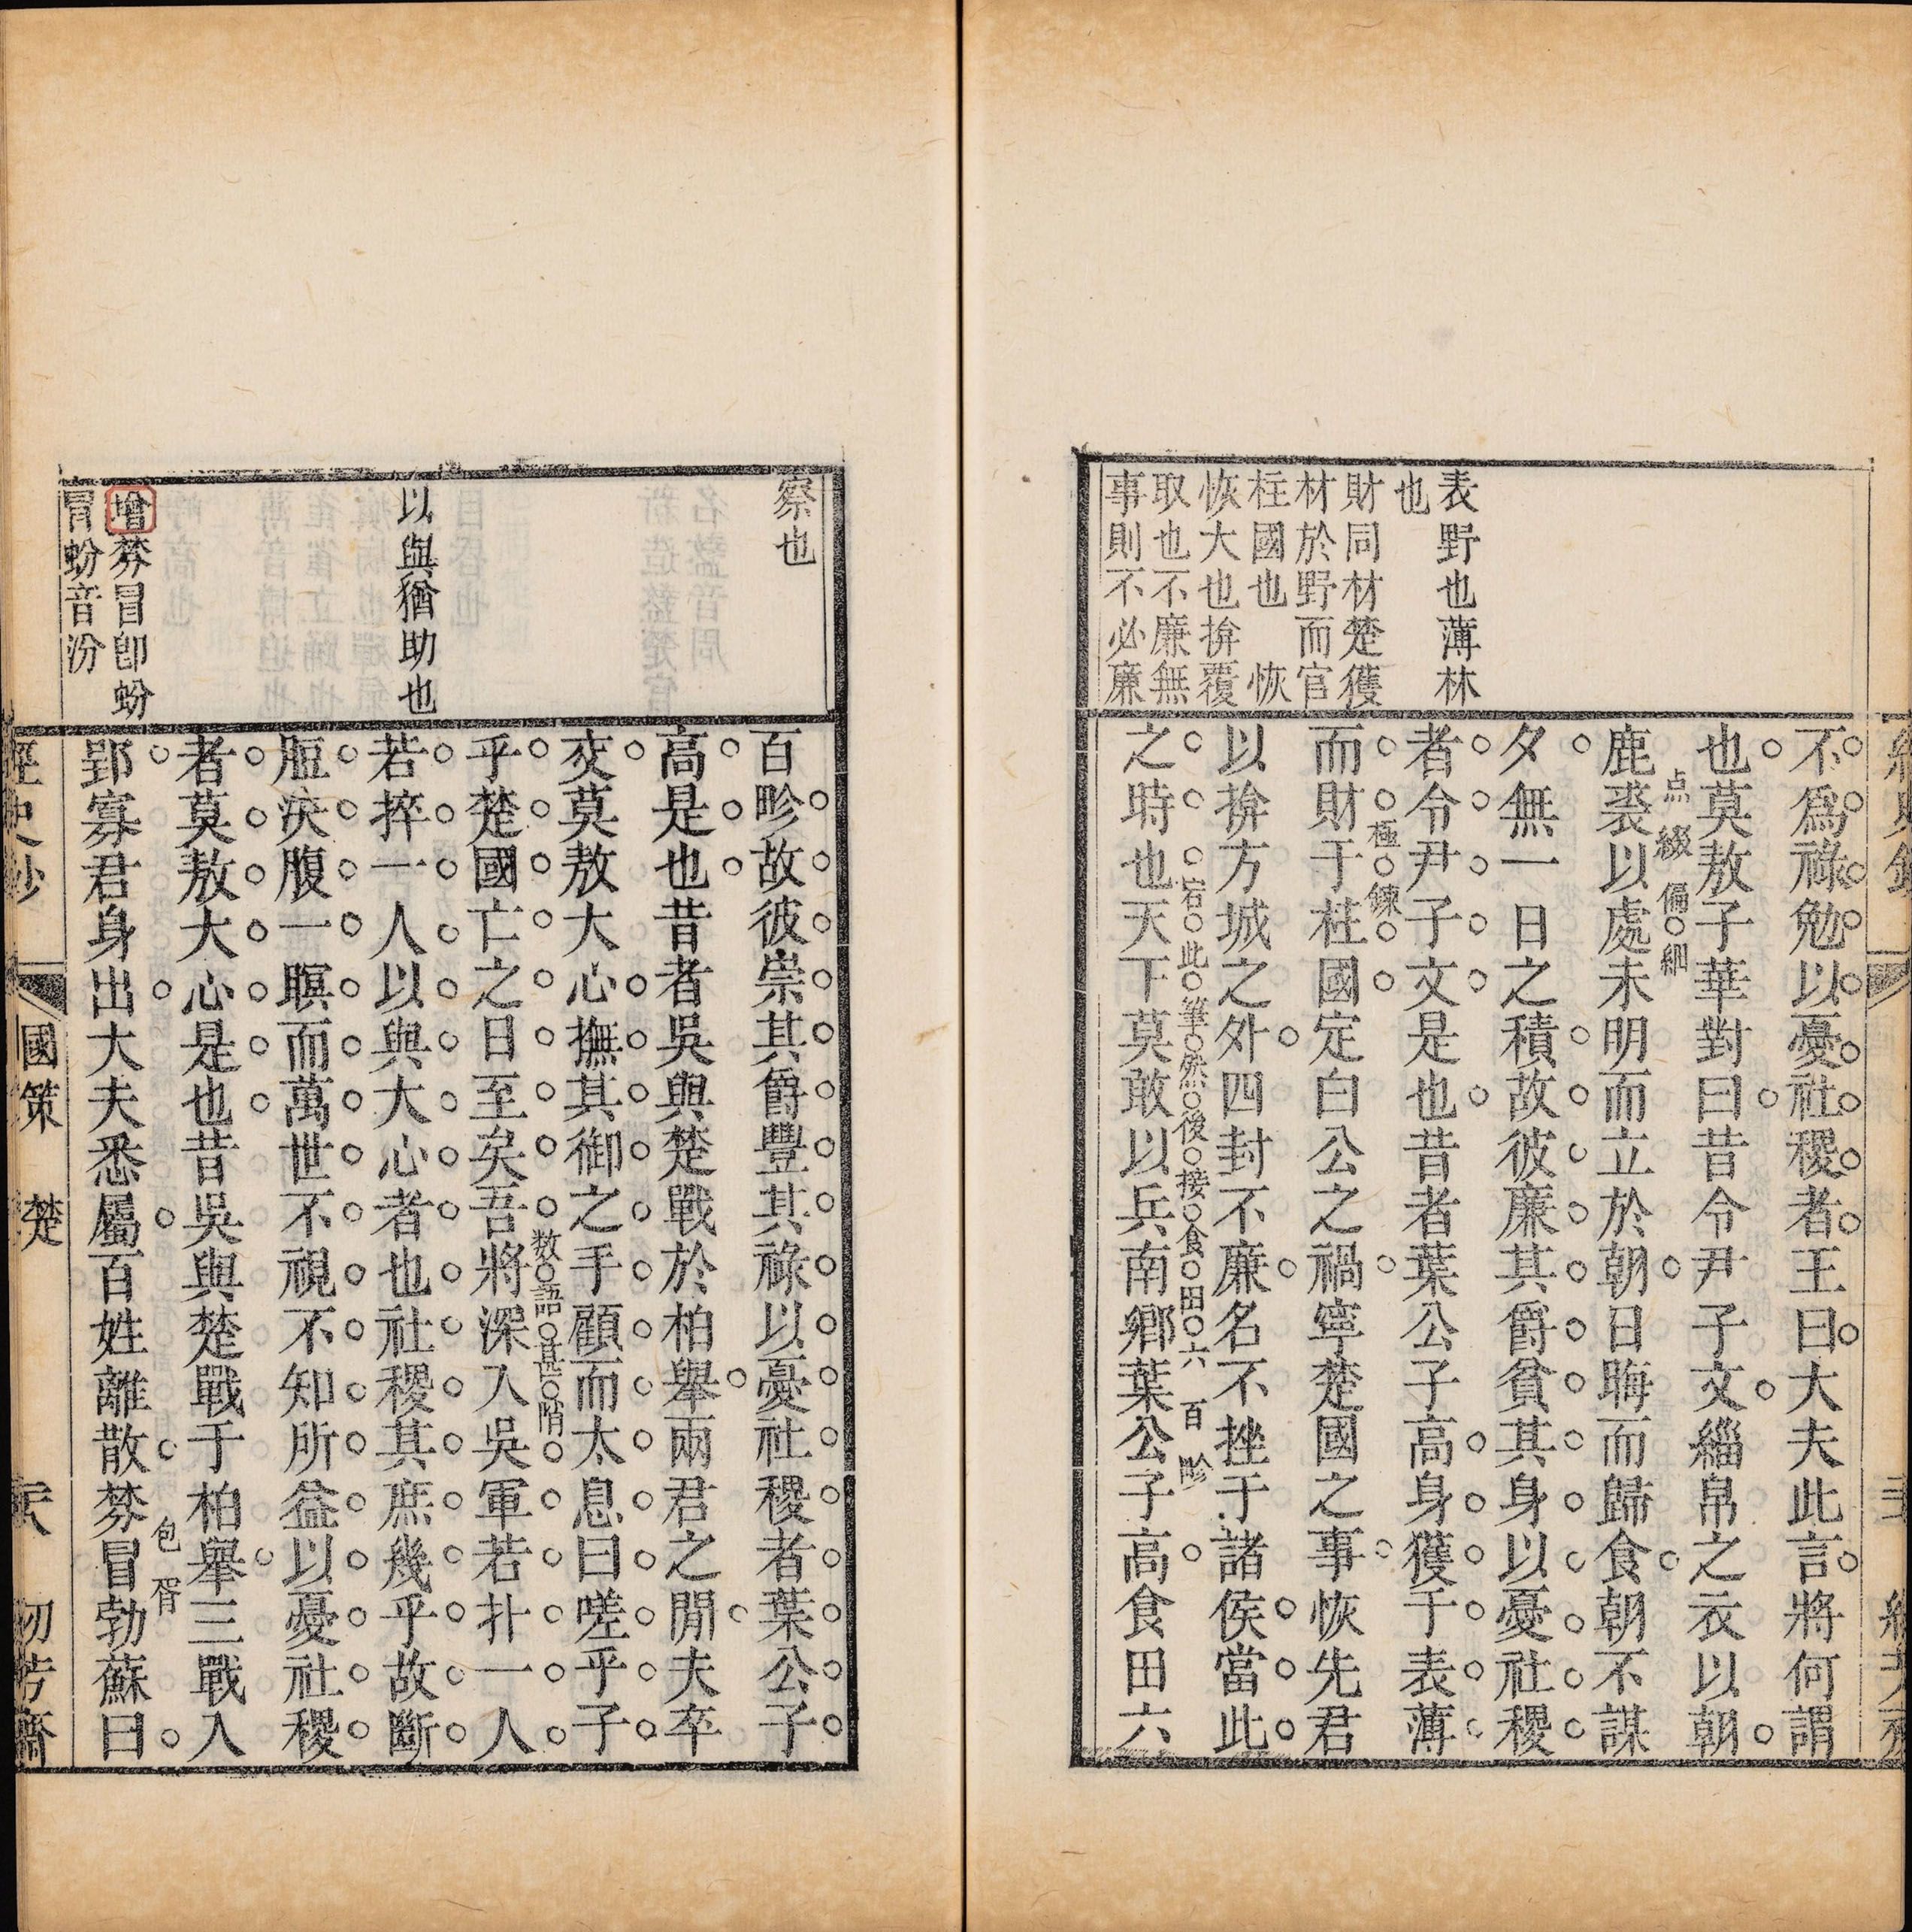 表野也薄林
也
財同材楚獲
材於野而官
柱國也 恢
恢大也揜覆
取也不廉無
事則不必廉
不爲祿勉以憂社稷者王曰大夫此言將何謂
也莫敖子華對曰昔令尹子文緇帛之衣以朝
点綴偏細
鹿裘以處未明而立於朝日晦而歸食朝不謀
夕無一日之積故彼廉其爵貧其身以憂社稷
者令尹子文是也昔者葉公子高身獲于表薄
極鍊
而財于柱國定白公之禍寧楚國之事恢先君
以揜方城之外四封不廉名不挫于諸侯當此
宕此筆然後接食田六百畛
之時也天下莫敢以兵南鄉葉公子高食田六
察也
以與猶助也
增棼冒卽蚡
冒蚡音汾
百畛故彼崇其爵豐其祿以憂社稷者葉公子
高是也昔者吳與楚戰於柏舉兩君之閒夫卒
交莫敖大心撫其御之手顧而太息曰嗟乎子
数語
乎楚國亡之日至矣吾將深入吳軍若扑一人
若捽一人以與大心者也社稷其庶幾乎故斷
脰決腹一瞑而萬世不視不知所益以憂社稷
者莫敖大心是也昔吳與楚戰于柏舉三戰入
包胥
郢寡君身出大夫悉屬百姓離散棼冒勃蘇曰
經史鈔
國策 楚